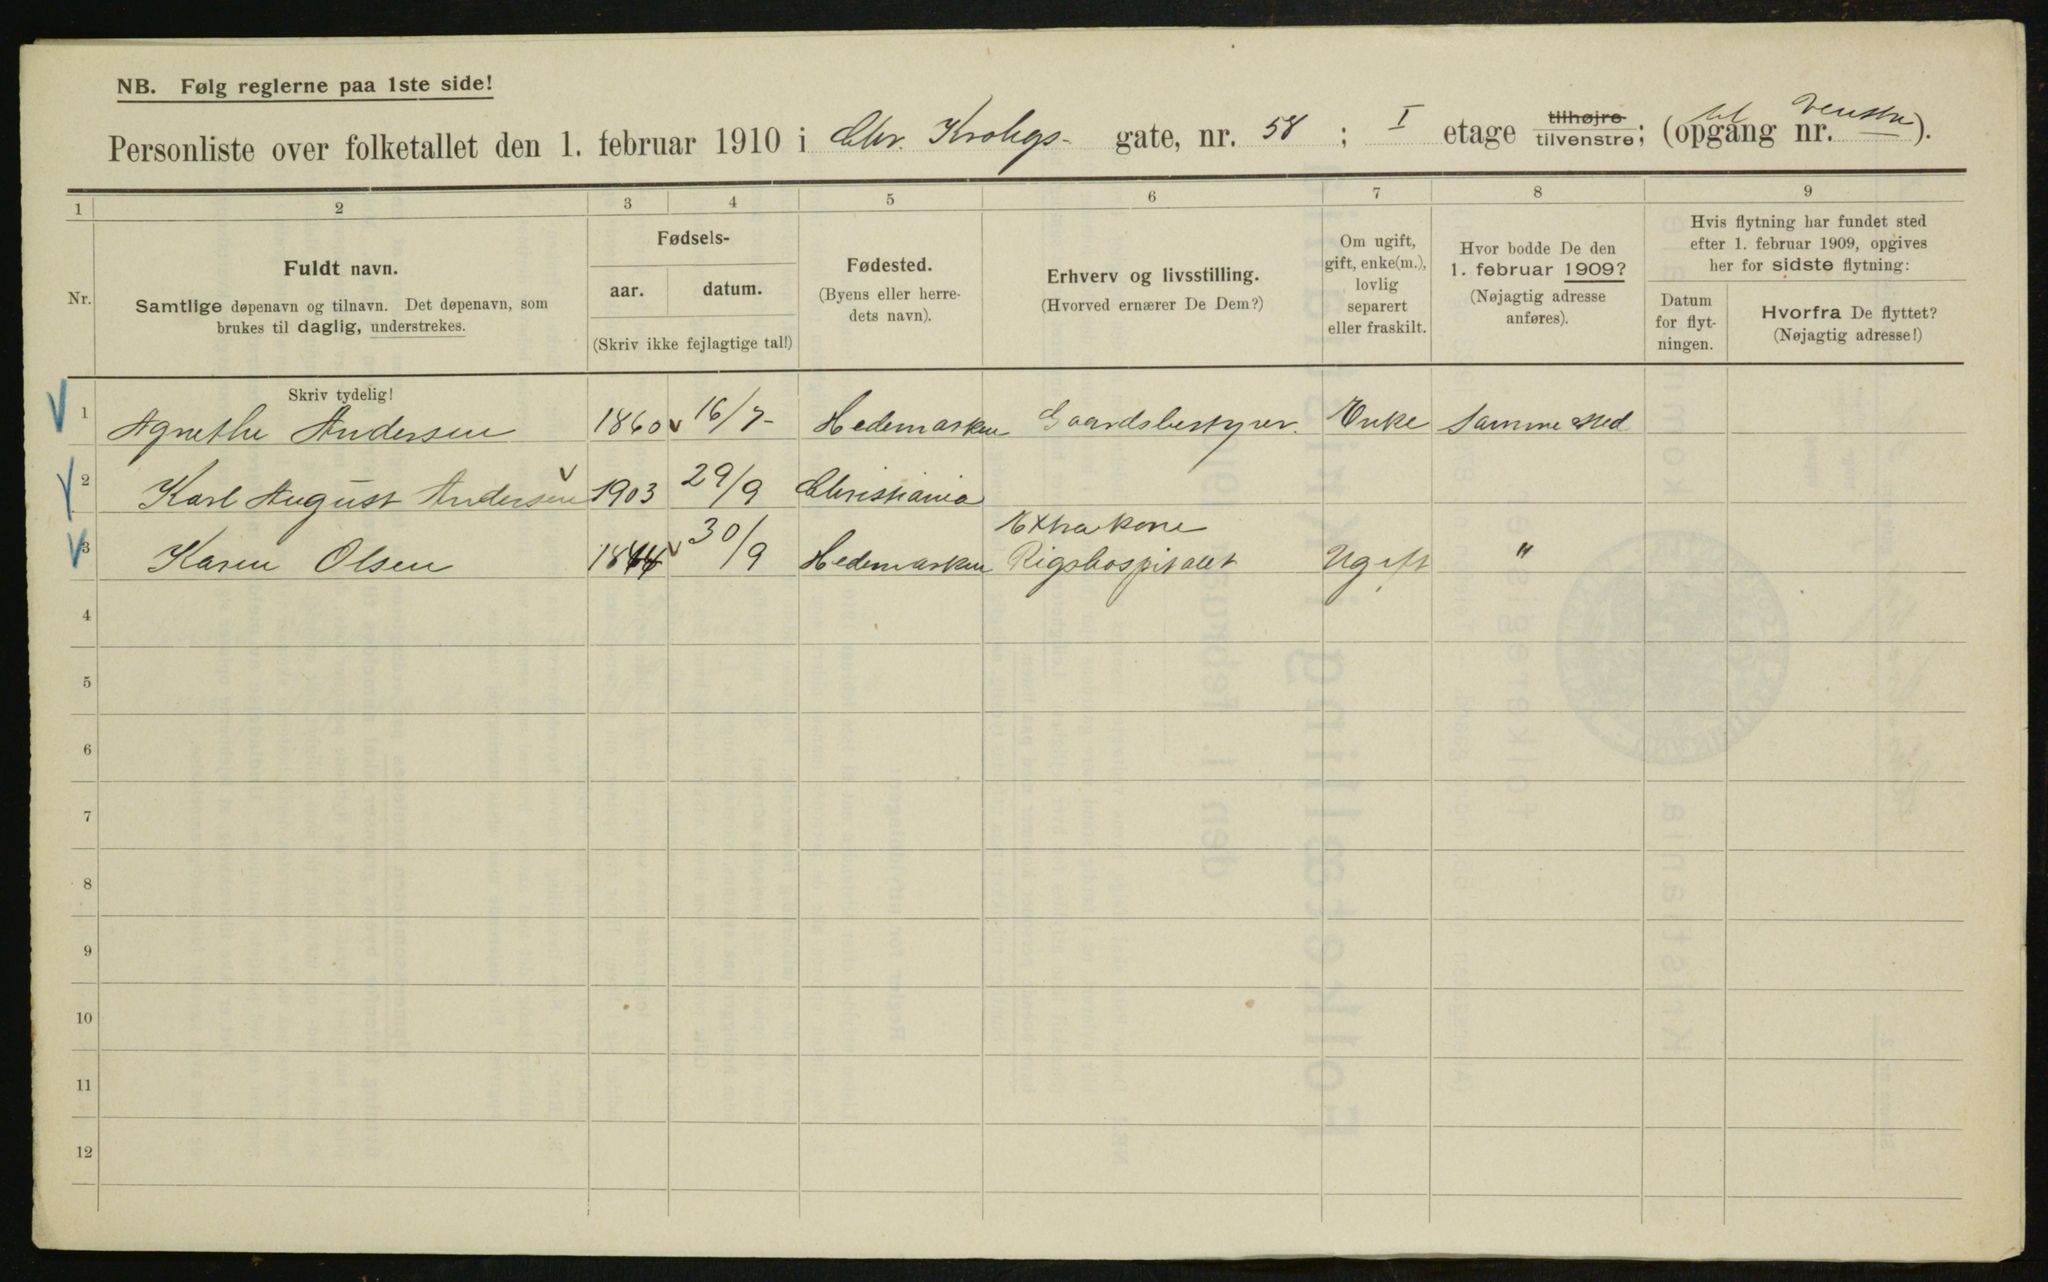 NB. Følg reglerne paa 1ste side!
Personliste over folketallet den 1. februar 1910 i Chr. Krohgs- gate, nr. 58; I etage tilhøjre tilvenstre; (opgang nr. til Venstre).
1 2 3 4 5 6 7 8 9
Nr.
Fuldt navn.
Samtlige døpenavn og tilnavn. Det døpenavn, som
brukes til daglig, understrekes.
Fødsels-
aar. datum.
(Skriv ikke fejlagtige tal!)
Fødested.
(Byens eller herre-
dets navn).
Erhverv og livsstilling.
(Hvorved ernærer De Dem?)
Om ugift,
gift, enke(m.),
lovlig
separert
eller fraskilt.
Hvor bodde De den
1. februar 1909?
(Nøjagtig adresse
anføres).
Hvis flytning har fundet sted
efter 1. februar 1909, opgives
her for sidste flytning:
Datum
for flyt-
ningen.
Hvorfra De flyttet?
(Nøjagtig adresse!)
Skriv tydelig!
1 Agnethe Andersen 1860 16/7- Hedemarken Gaardsbestyrer. Enke Samme sted
2 Karl August Andersen 1903 29/9 Christiania
3 Karen Olsen 1844 30/9 Hedemarken Extrakone Rigshospitalet Ugift "
4
5
6
7
8
9
10
11
12